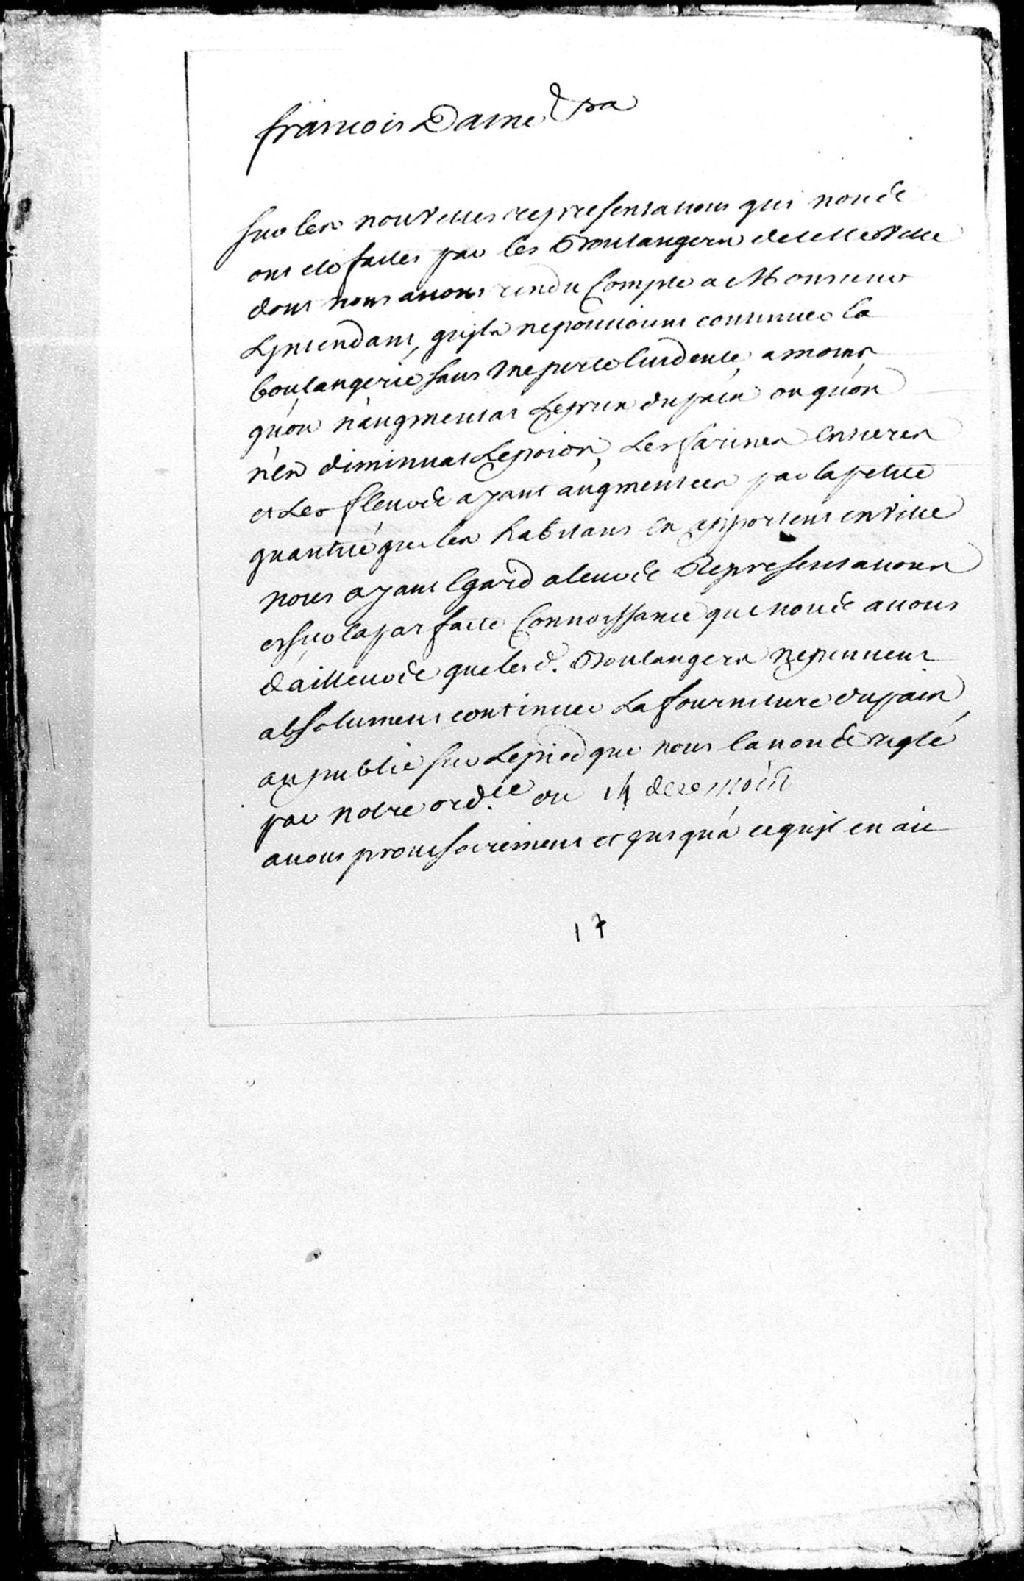 francois Daine &ra
Sur les nouvelles representations qui nous
ont eté faites par les Boulangers de cette Ville
dont nous avons rendu Compte a Monsieur
L'Intendant, qu'ils ne pouvoient continuer la
boulangerie sans une perte Evidente, a moins
qu'on n'augmentat Le prix du pain ou qu'on
n'en diminuat Le poids, Les farines Entieres
et Les fleurs ayant augmentées par la petite
quantité que les habitans En apportent en Ville
nous ayant Egard a leurs Representations
et sur la parfaite Connoissance que nous avons
d'ailleurs que lesd. Boulangers ne peuvent
absolument continuer La fourniture du pain
au public sur Le pied que nous l'avons reglé
par notre ord.ce du 14 de ce mois
avons provisoirement et jusqu'a ce qu'il en ait
17